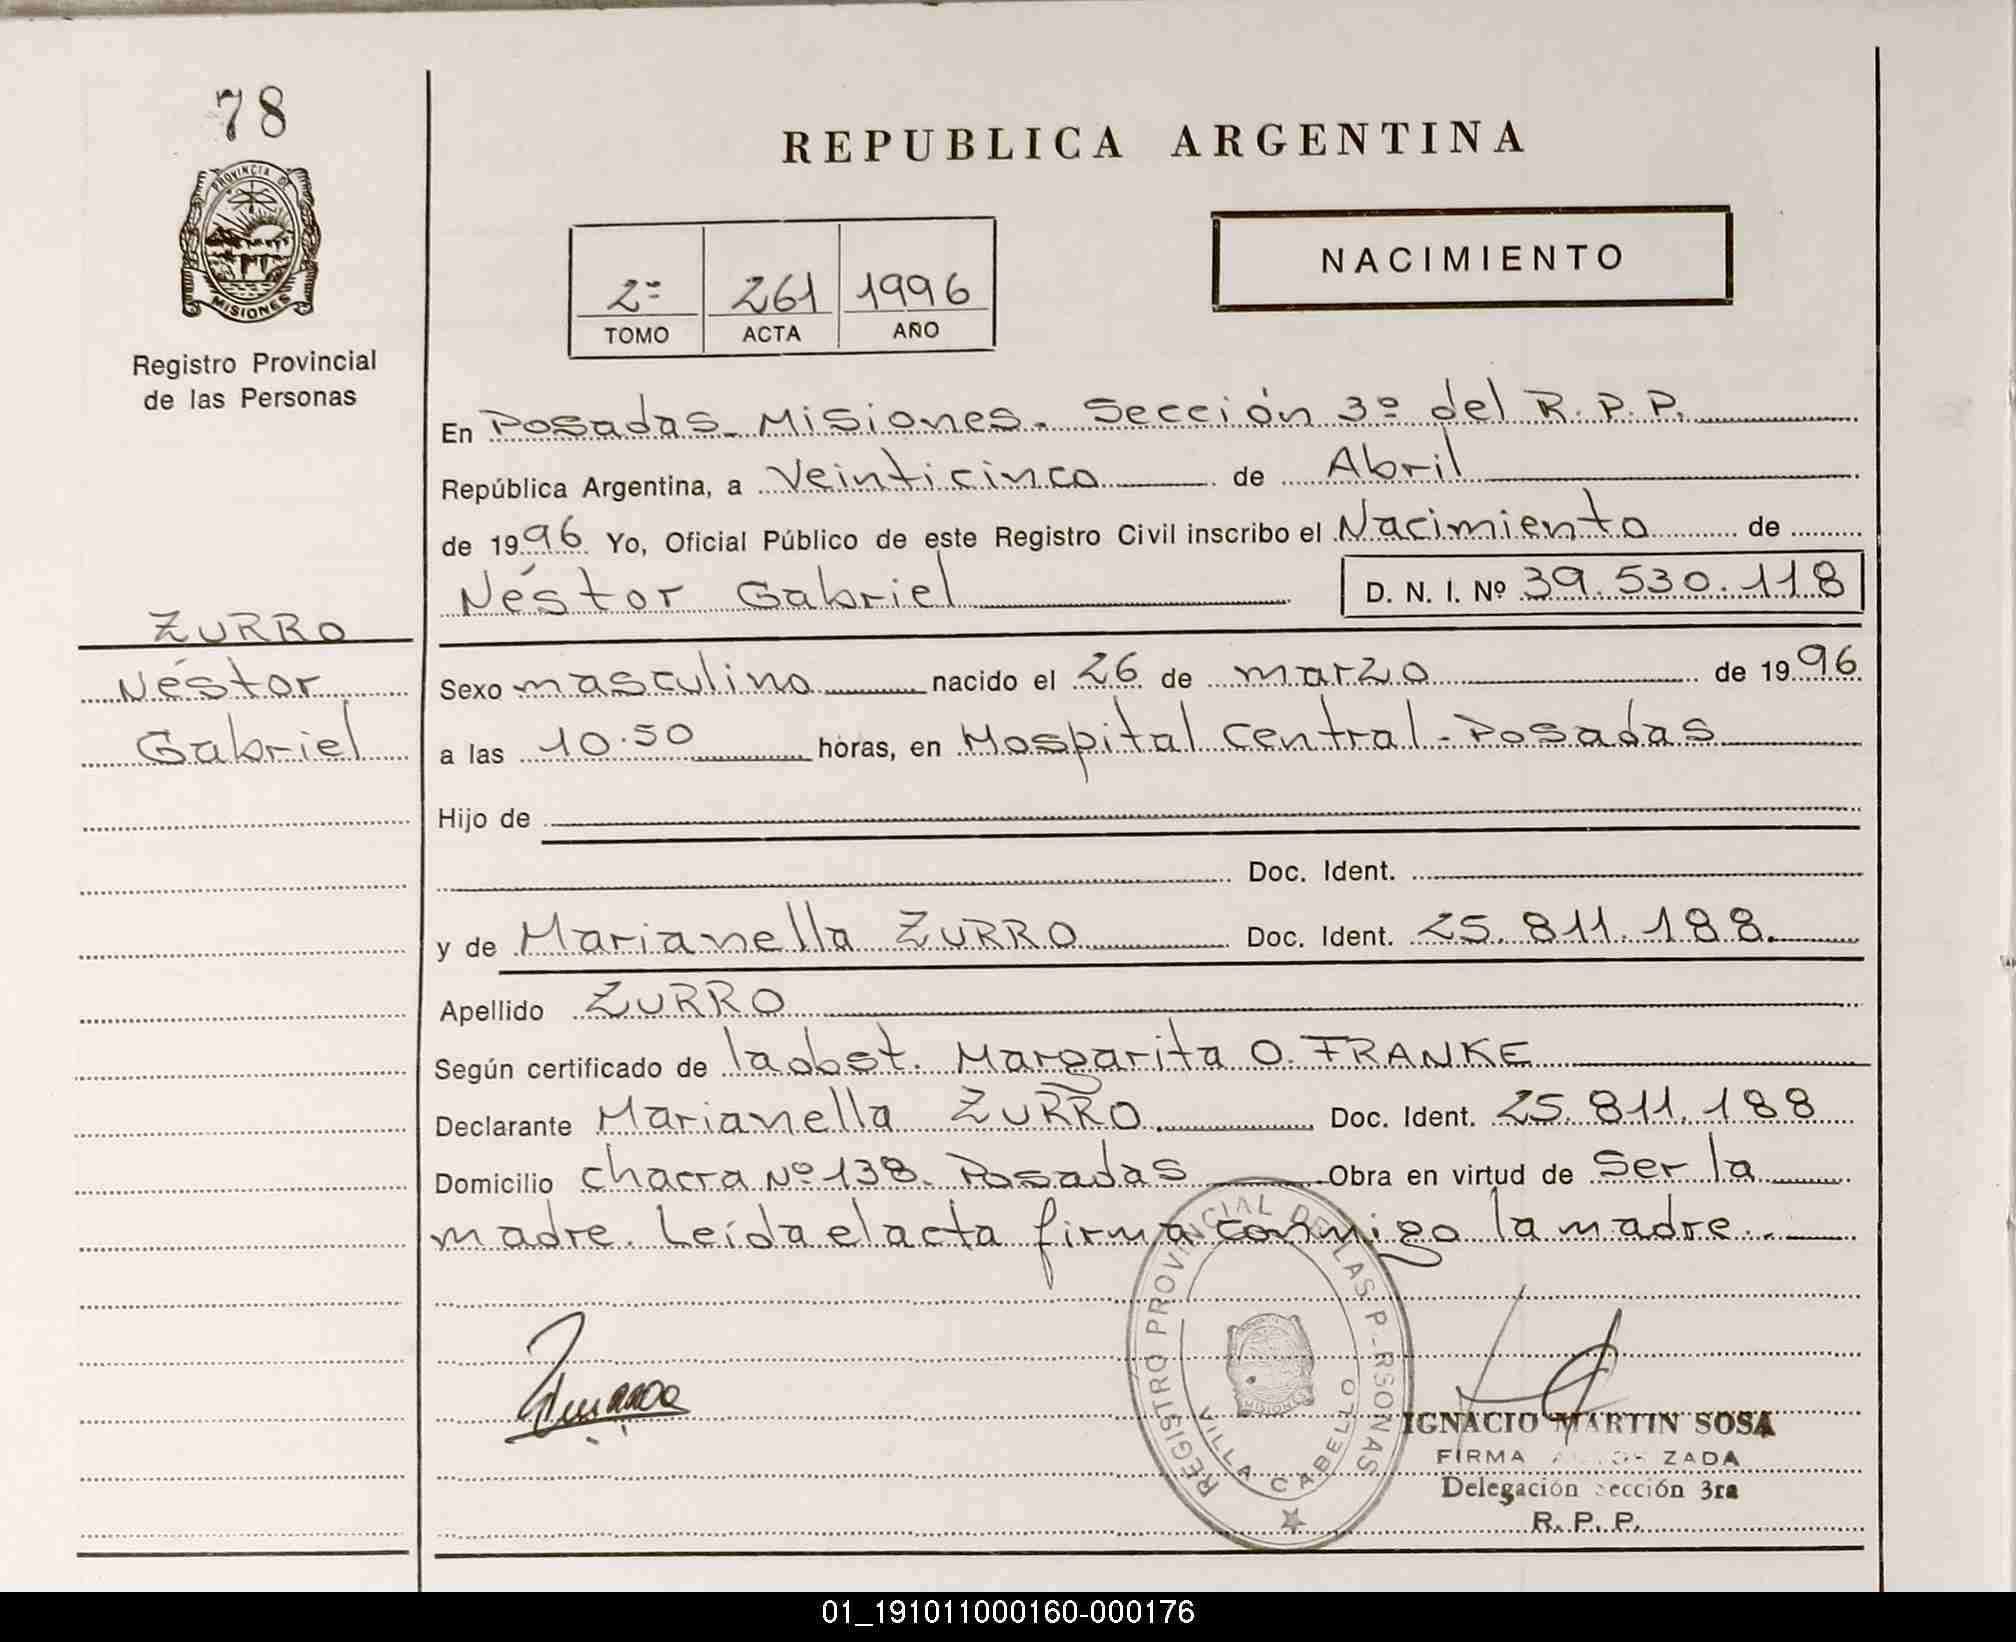 78
PROVINCIA DE
MISIONES
Registro Provincial
de las Personas
ZURRO
Néstor
Gabriel
REPUBLICA ARGENTINA
2º 261 1996
TOMO ACTA AÑO
NACIMIENTO
En Posadas Misiones. Sección 3º del R.P.P.
República Argentina, a Veinticinco de Abril
de 1996 Yo, Oficial Público de este Registro Civil inscribo el Nacimiento de
Néstor Gabriel D. N. I. Nº 39.530.118
Sexo masculino nacido el 26 de marzo de 1996
a las 10.50 horas, en Hospital Central - Posadas
Hijo de
Doc. Ident.
y de Marianella ZURRO Doc. Ident. 25.811.188.
Apellido ZURRO
Según certificado de la obst. Margarita O. FRANKE
Declarante Marianella ZURRO. Doc. Ident. 25.811.188
Domicilio chacra Nº 138. Posadas Obra en virtud de Ser la
madre. Leída el acta firma conmigo la madre.
REGISTRO PROVINCIAL DE LAS P-RSONAS
MISIONES
VILLA CABELLO
IGNACIO MARTIN SOSA
FIRMA ZADA
Delegación ección 3ra
R. P. P.
01_191011000160-000176